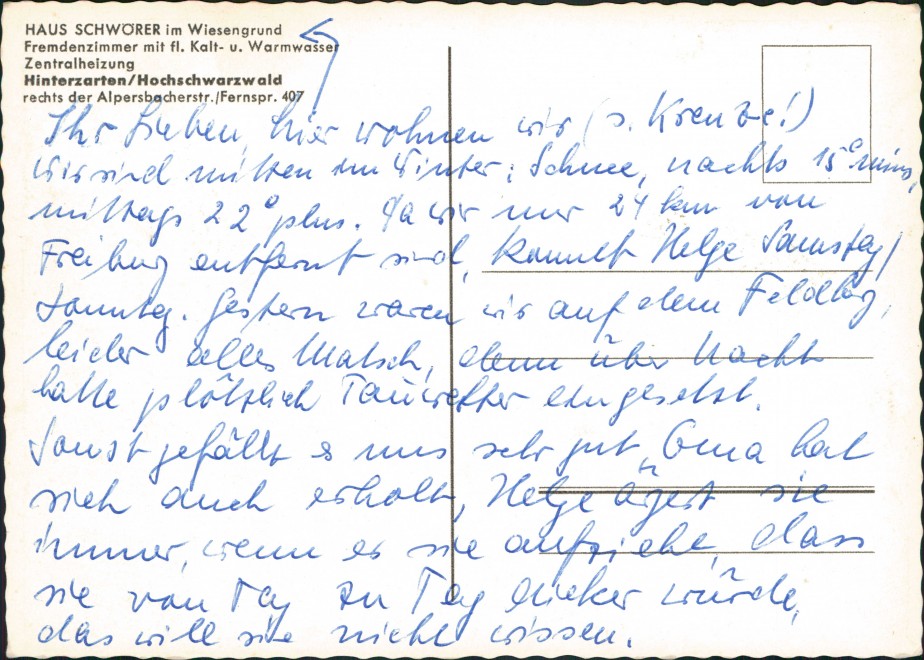 HAUS SCHWÖRER im Wiesengrund
Fremdenzimmer mit fl. Kalt- u. Warmwasser
Zentralheizung
Hinterzarten/Hochschwarzwald
rechts der Alpersbacherstr./Fernspr. 407
Ihr Lieben, hier wohnen wir (s. Kreuze!)
Wir sind mitten im Winter: Schnee, nachts 15° minus,
mittags 22° plus. Da wir nur 24 km von
Freiburg entfernt sind, kommt Helge Samstag/
Sonntag. Gestern waren wir auf dem Feldberg,
leider alles Matsch, denn über Nacht
hatte plötzlich Tauwetter eingesetzt.
Sonst gefällt es uns sehr gut, Oma hat
sich auch erholt, Helge ärgert sie
immer, wenn er sie aufzieht, dass
sie von Tag zu Tag dicker würde,
das will sie nicht wissen.